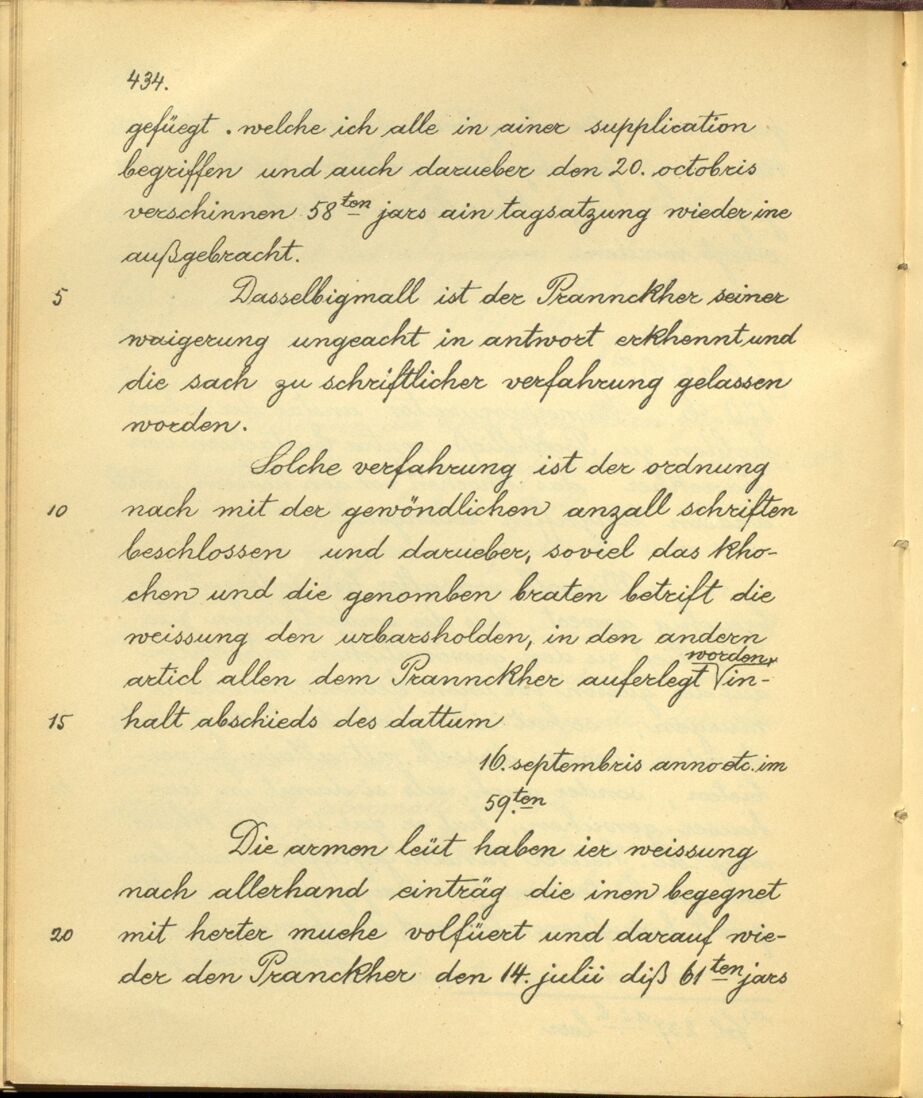 434.
gefüegt . welche ich alle in ainer supplication
begriffen und auch darueber den 20. octobris
verschinnen 58ten jars ain tagsatzung wieder ine
außgebracht.
5 Dasselbigmall ist der Prannckher seiner
waigerung ungeacht in antwort erkhennt und
die sach zu schriftlicher verfahrung gelassen
worden.
Solche verfahrung ist der ordnung
10 nach mit der gewöndlichen anzall schriften
beschlossen und darueber, soviel das kho-
chen und die genomben braten betrift die
weissung den urbarsholden, in den andern
articl allen dem Prannckher auferlegt worden in-
15 halt abschieds des dattum
16. septembris anno etc. im
59.ten
Die armen leüt haben ier weissung
nach allerhand einträg die inen begegnet
20 mit herter muehe volfüert und darauf wie-
der den Pranckher den 14. julii diß 61ten jars